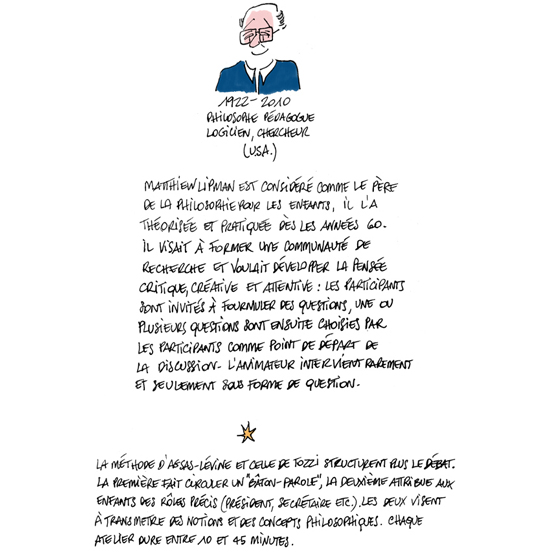 1922-2010
PHILOSOPHE PÉDAGOGUE
LOGICIEN, CHERCHEUR
(U.S.A.)
MATTHIEW LIPMAN EST CONSIDÉRÉ COMME LE PÈRE
DE LA PHILOSOPHIE POUR LES ENFANTS, IL L'A
THÉORISÉE ET PRATIQUÉE DÈS LES ANNÉES 60.
IL VISAIT À FORMER UNE COMMUNAUTÉ DE
RECHERCHE ET VOULAIT DÉVELOPPER LA PENSÉE
CRITIQUE, CRÉATIVE ET ATTENTIVE : LES PARTICIPANTS
SONT INVITÉS À FOURMULER DES QUESTIONS, UNE OU
PLUSIEURS QUESTIONS SONT ENSUITE CHOISIES PAR
LES PARTICIPANTS COMME POINT DE DÉPART DE
LA DISCUSSION. L'ANIMATEUR INTERVIENT RAREMENT
ET SEULEMENT SOUS FORME DE QUESTION.
LA MÉTHODE D'AGSAS-LÉVINE ET CELLE DE TOZZI STRUCTURENT PLUS LE DÉBAT.
LA PREMIÈRE FAIT CIRCULER UN "BÂTON-PAROLE", LA DEUXIÈME ATTRIBUE AUX
ENFANTS DES RÔLES PRÉCIS (PRÉSIDENT, SECRÉTAIRE ETC.). LES DEUX VISENT
À TRANSMETRE DES NOTIONS ET DES CONCEPTS PHILOSOPHIQUES. CHAQUE
ATELIER DURE ENTRE 10 ET 45 MINUTES.